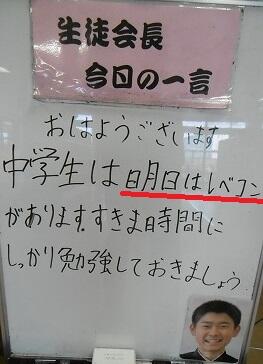 生徒会長
今日の一言
おはようございます
中学生は日月日はレベコン
があります。すきま時間に
しっかり勉強しておきましょう。